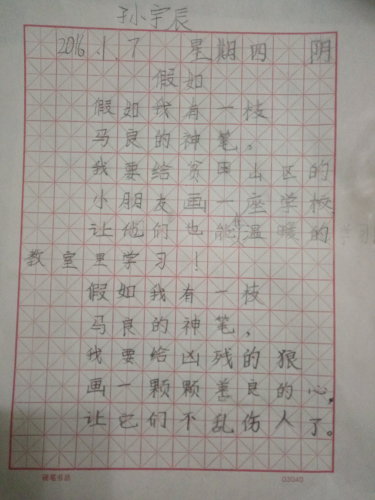 孙宇辰
2016.1.7 星期四 阴
假如
假如我有一枝
马良的神笔。
我要给贫困山区的
小朋友画一座学校
让他们也能在温暖的
教室里学习！
假如我有一枝
马良的神笔，
我要给凶残的狼
画一颗颗善良的心，
让它们不乱伤人了。
硬笔书法 03040